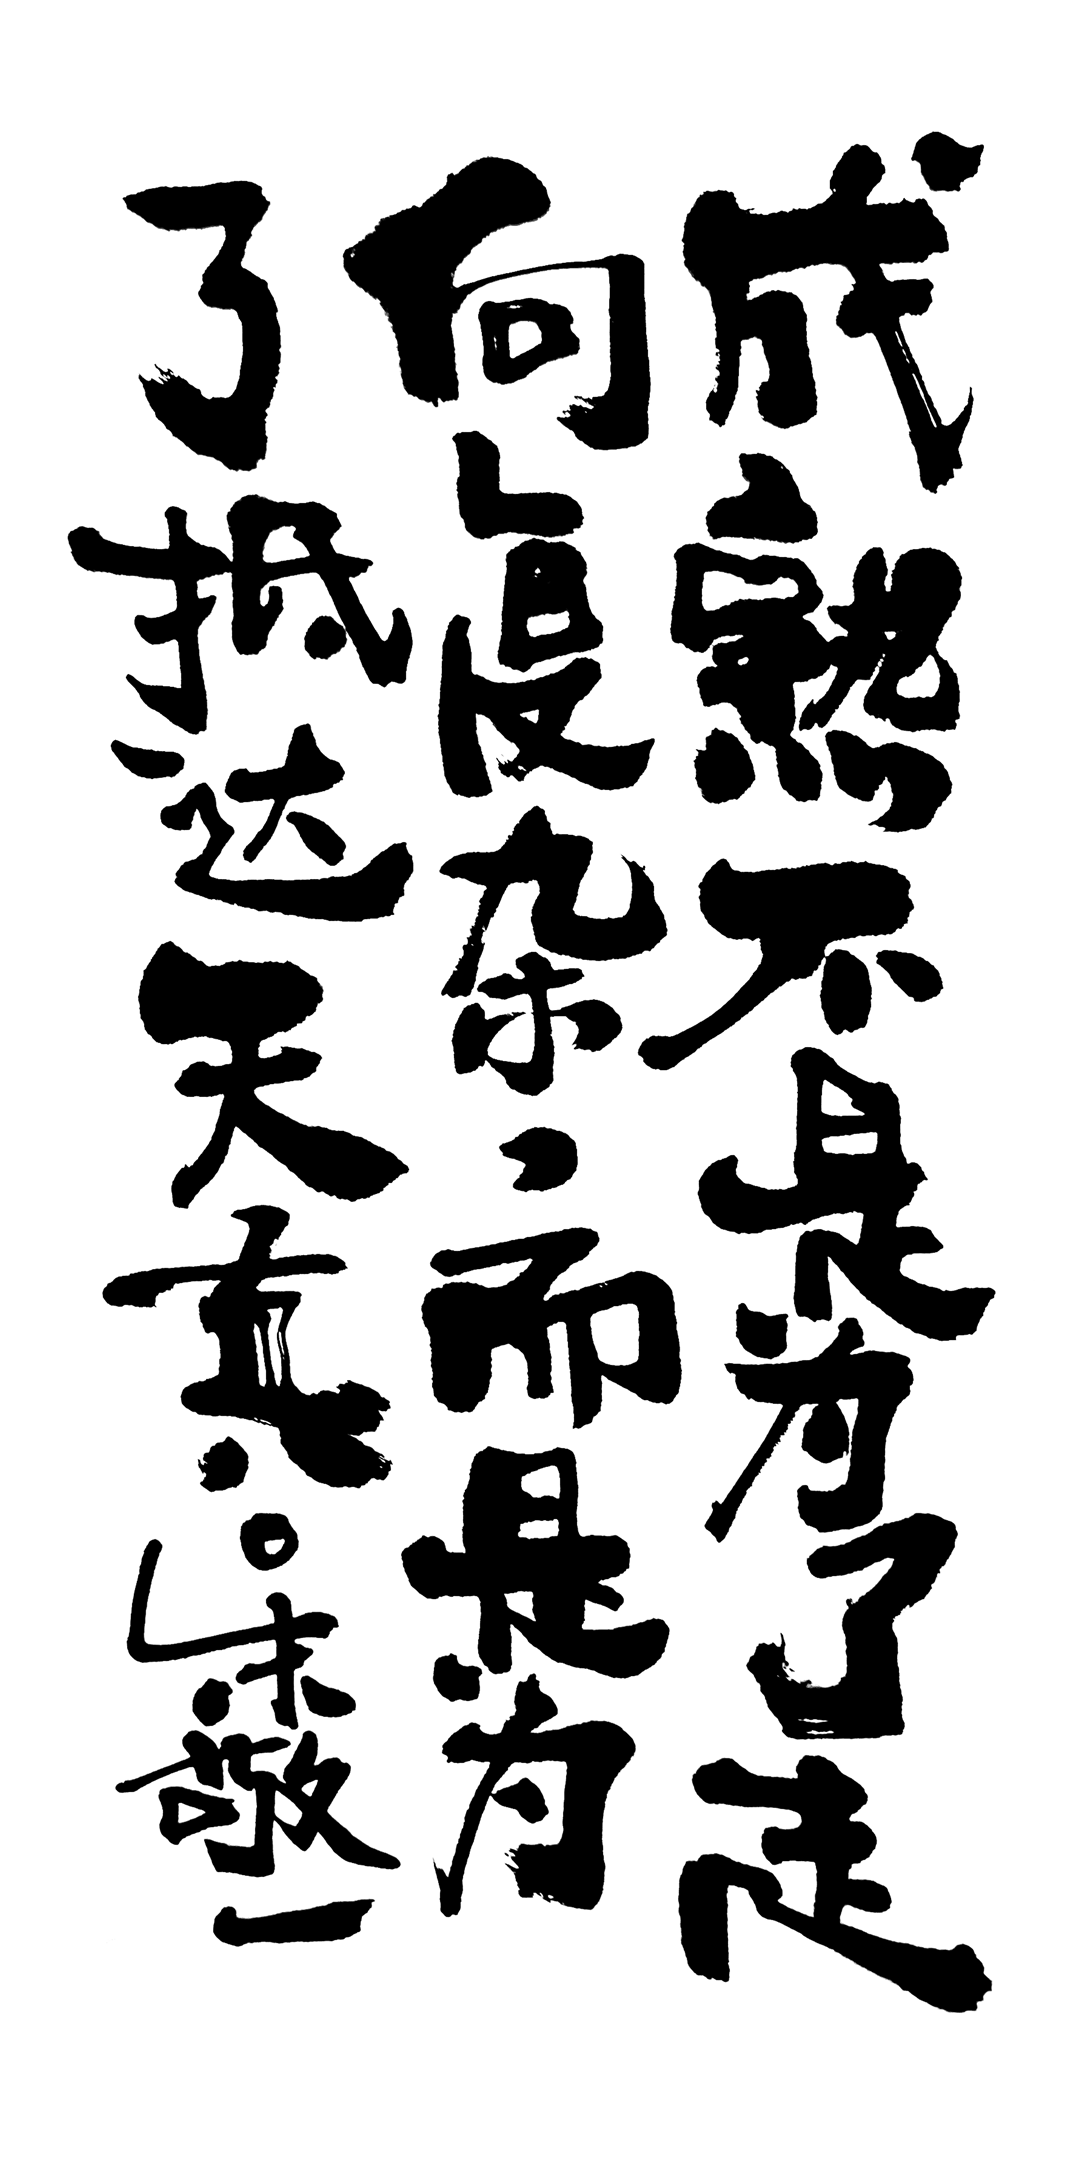 成熟不是为了走
向复杂、而是为
了抵达天真。